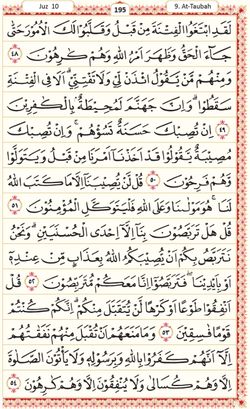 Juz 10
195
9. At-Taubah
لَقَدِ ابْتَغَوُا الْفِتْنَةَ مِنْ قَبْلُ وَقَلَّبُوْا لَكَ الْاُمُوْرَ حَتّٰى
جَآءَ الْحَقُّ وَظَهَرَ اَمْرُ اللّٰهِ وَهُمْ كٰرِهُوْنَ ۝٤٨
وَمِنْهُمْ مَّنْ يَّقُوْلُ ائْذَنْ لِّيْ وَلَا تَفْتِنِّيْ ۗ اَلَا فِى الْفِتْنَةِ
سَقَطُوْا ۗ وَاِنَّ جَهَنَّمَ لَمُحِيْطَةٌ ۢ بِالْكٰفِرِيْنَ
۝٤٩ اِنْ تُصِبْكَ حَسَنَةٌ تَسُؤْهُمْ ۚ وَاِنْ تُصِبْكَ
مُصِيْبَةٌ يَّقُوْلُوْا قَدْ اَخَذْنَآ اَمْرَنَا مِنْ قَبْلُ وَيَتَوَلَّوْا
وَّهُمْ فَرِحُوْنَ ۝٥٠ قُلْ لَّنْ يُّصِيْبَنَآ اِلَّا مَا كَتَبَ اللّٰهُ
لَنَا ۚ هُوَ مَوْلٰىنَا وَعَلَى اللّٰهِ فَلْيَتَوَكَّلِ الْمُؤْمِنُوْنَ ۝٥١
قُلْ هَلْ تَرَبَّصُوْنَ بِنَآ اِلَّآ اِحْدَى الْحُسْنَيَيْنِ ۗ وَنَحْنُ
نَتَرَبَّصُ بِكُمْ اَنْ يُّصِيْبَكُمُ اللّٰهُ بِعَذَابٍ مِّنْ عِنْدِهٖٓ
اَوْ بِاَيْدِيْنَا ۖ فَتَرَبَّصُوْٓا اِنَّا مَعَكُمْ مُّتَرَبِّصُوْنَ ۝٥٢ قُلْ
اَنْفِقُوْا طَوْعًا اَوْ كَرْهًا لَّنْ يُّتَقَبَّلَ مِنْكُمْ ۗ اِنَّكُمْ كُنْتُمْ
قَوْمًا فٰسِقِيْنَ ۝٥٣ وَمَا مَنَعَهُمْ اَنْ تُقْبَلَ مِنْهُمْ نَفَقٰتُهُمْ
اِلَّآ اَنَّهُمْ كَفَرُوْا بِاللّٰهِ وَبِرَسُوْلِهٖ وَلَا يَأْتُوْنَ الصَّلٰوةَ
اِلَّا وَهُمْ كُسَالٰى وَلَا يُنْفِقُوْنَ اِلَّا وَهُمْ كٰرِهُوْنَ ۝٥٤